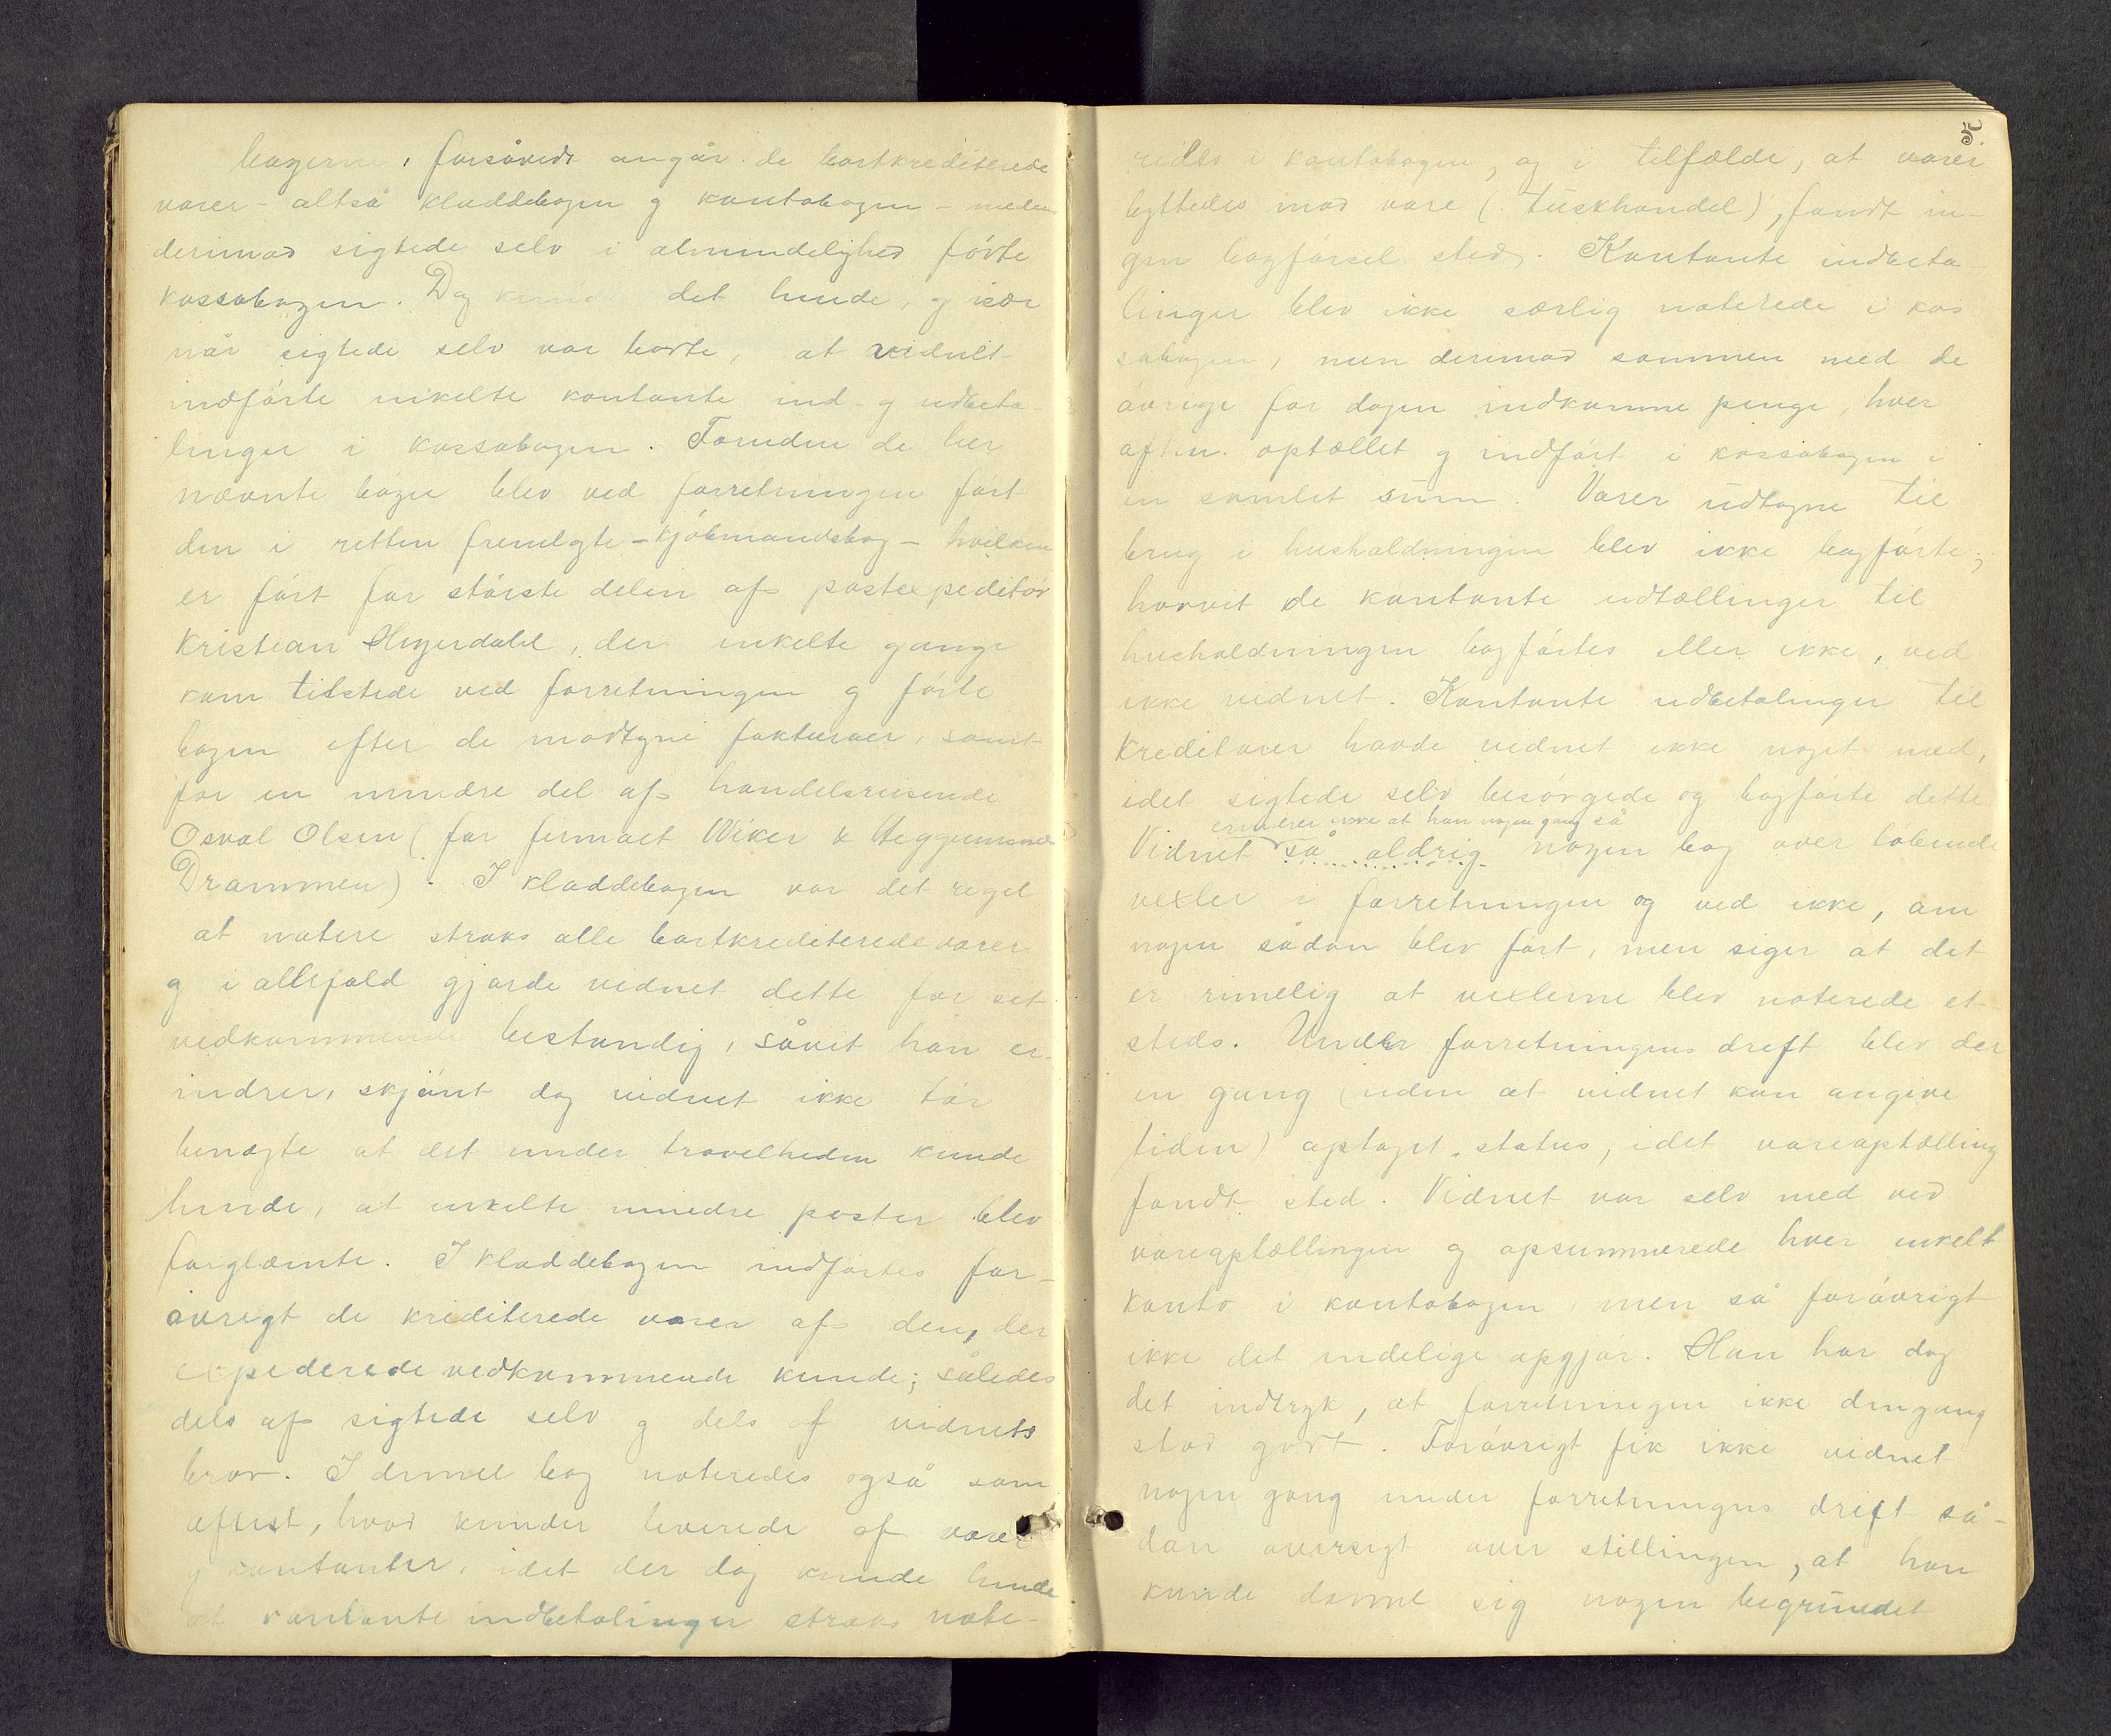 bøgerne, forsåvidt angår de bortkrediterede
varer - altså kladdebogen og kontobogen - meden
derimod sigtede selv i almindelighed førte
kassabogen. Dog kunde det hende, og især
når sigtede selv var borte, at vidnet
indførte enkelte kontante ind- og udbeta-
linger i kassabogen. Foruden de her
nævnte bøger blev ved forretningen ført
den i retten fremlagte - kjøbmandsbog - hvilken
er ført for største delen af postexpeditør
Kristian Heyerdahl, der enkelte gange
kom tilstede ved forretningen og førte
bogen efter de modtagne fakturaer, samt
for en mindre del af handelsreisende
Osval Olsen (for firmaet Wiker &
Drammen). I kladdebogen var det regel
at notere straks alle bortkrediterede varer
og i allefald gjorde vidnet dette for sit
vedkommende bestandig, såvit han er-
indrer, skjønt dog vidnet ikke tør
benægte at det under travelheden kunde
hende, at enkelte mindre poster blev
forglæmte. I kladdebogen indførtes for-
øvrigt de krediterede varer af den, der
expederede vedkommende kunde; således
dels af sigtede selv og dels af vidnets
bror. I denne bog noteredes også som
oftest, hvad kunder leverede af varer
og kontanter, idet der dog kunde hende
at kontante indbetalinger straks note-
5.
redes i kontobogen, og i tilfælde, at varer
byttedes mod vare (tuskhandel), fandt in-
gen bogførsel sted. Kontante indbeta-
linger blev ikke særlig noterede i kas
sabogen, men derimod sammen med de
øvrige for dagen indkomne penge, hver
aften optællet og indført i kassabogen i
en samlet sum. Varer udtagne til
brug i husholdningen blev ikke bogførte;
horvit de kontante udtællinger til
husholdningen bogførtes eller ikke, ved
ikke vidnet. Kontante udbetalinger til
kreditorer havde vidnet ikke noget med,
idet sigtede selv besørgede og bogførte dette
erindrer ikke at han nogen gang så
Vidnet så aldrig nogen bog over løbende
vexler i forretningen og ved ikke, om
nogen sådan blev ført, men siger at det
er rimelig at vexlerne blev noterede et
steds. Under forretningens dreft blev der
en gang (uden at vidnet kan angive
tiden) optaget status, idet vareoptælling
fandt sted. Vidnet var selv med ved
vareoptællingen og opsummerede hver enkelt
konto i kontobogen, men så forøvrigt
ikke det endelige opgjør. Han har dog
det indtryk, at forretningen ikke dengang
stod godt. Forøvrigt fik ikke vidnet
nogen gang under forretningens drift så-
dan oversigt over stillingen, at han
kunde danne sig nogen begrundet